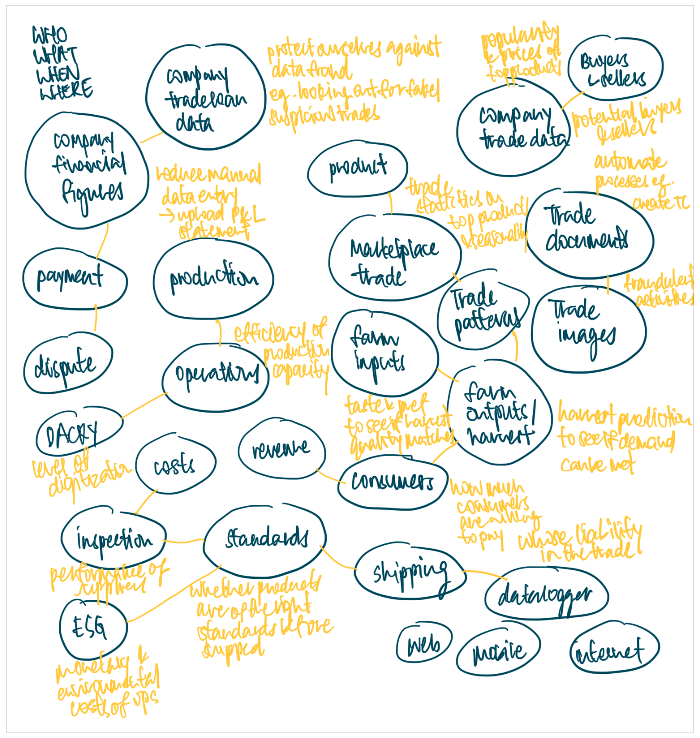 WHO
WHAT
WHEN
WHERE
company
trade loan
data
protect ourselves against
data fraud
eg. looking out for fake/
suspicious trades
popularity
& prices of
top products
Buyers
& sellers
company
trade data
potential buyers
& sellers
company
financial
figures
reduce manual
data entry
→ upload P&L
statement
product
trade
statistics on
top products
& seasonality
automate
processes of
create TC
Trade
documents
Marketplace
trade
payment
production
Trade
patterns
fraudulent
activities
Trade
images
efficiency of
production
capacity
farm
inputs
dispute
operations
farm
outputs/
harvest
taste & pref
to see if harvest
quality matches
harvest prediction
to see if demand
can be met
level of
digitization
costs
revenue
consumers
how much
consumers
are willing
to pay
whose liability
in the trade
inspection
standards
shipping
performance of
datalogger
whether products
are of the right
standards before
shipped
ESG
monetary &
environmental
costs of ops
web
mobile
internet